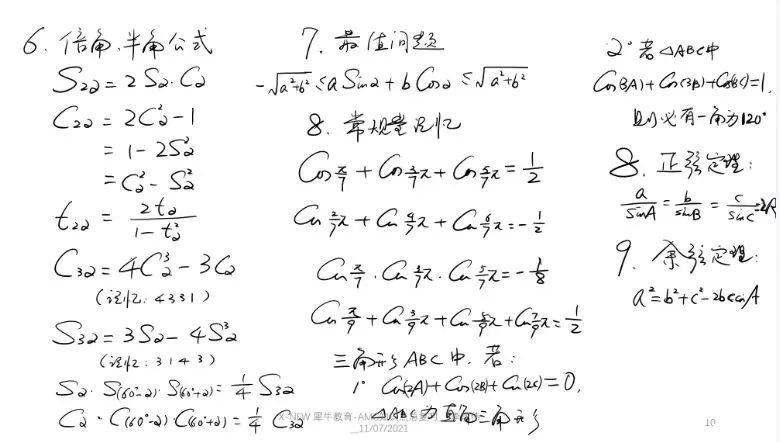 6. 倍角.半角公式
S₂α = 2Sα·Cα
C₂α = 2Cα² - 1
= 1 - 2Sα²
= Cα² - Sα²
t₂α = 2tα / (1 - tα²)
C₃α = 4Cα³ - 3Cα
(记忆: 4331)
S₃α = 3Sα - 4Sα³
(记忆: 3143)
Sα · S(60°-α) · S(60°+α) = 1/4 S₃α
Cα · C(60°-α) C(60°+α) = 1/4 C₃α
7. 最值问题
-√(a²+b²) ≤ a Sinα + b Cosα ≤ √(a²+b²)
8. 常规量记忆
Cos π/7 + Cos 3/7π + Cos 5/7π = 1/2
Cos 2/7π + Cos 4/7π + Cos 6/7π = -1/2
Cos π/7 · Cos 3/7π · Cos 5/7π = -1/8
Cos π/9 + Cos 3/9π + Cos 5/9π + Cos 7/9π = 1/2
三角形ABC中, 若:
1° Cos(2A) + Cos(2B) + Cos(2C) = 0,
△ABC为直角三角形
2° 若△ABC中
Cos(3A) + Cos(3B) + Cos(3C) = 1,
则必有一角为120°
8. 正弦定理:
a/sinA = b/sinB = c/sinC = 2R
9. 余弦定理:
a² = b² + c² - 2bccosA
X-NEW 犀牛教育-AM
11/07/2021
10